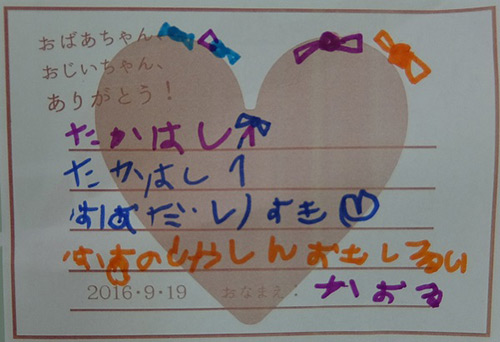 おばあちゃん、
おじいちゃん、
ありがとう!
たかはし
たかはし
だいすき
しゃしんおもしろい
2016・9・19 おなまえ: かおる